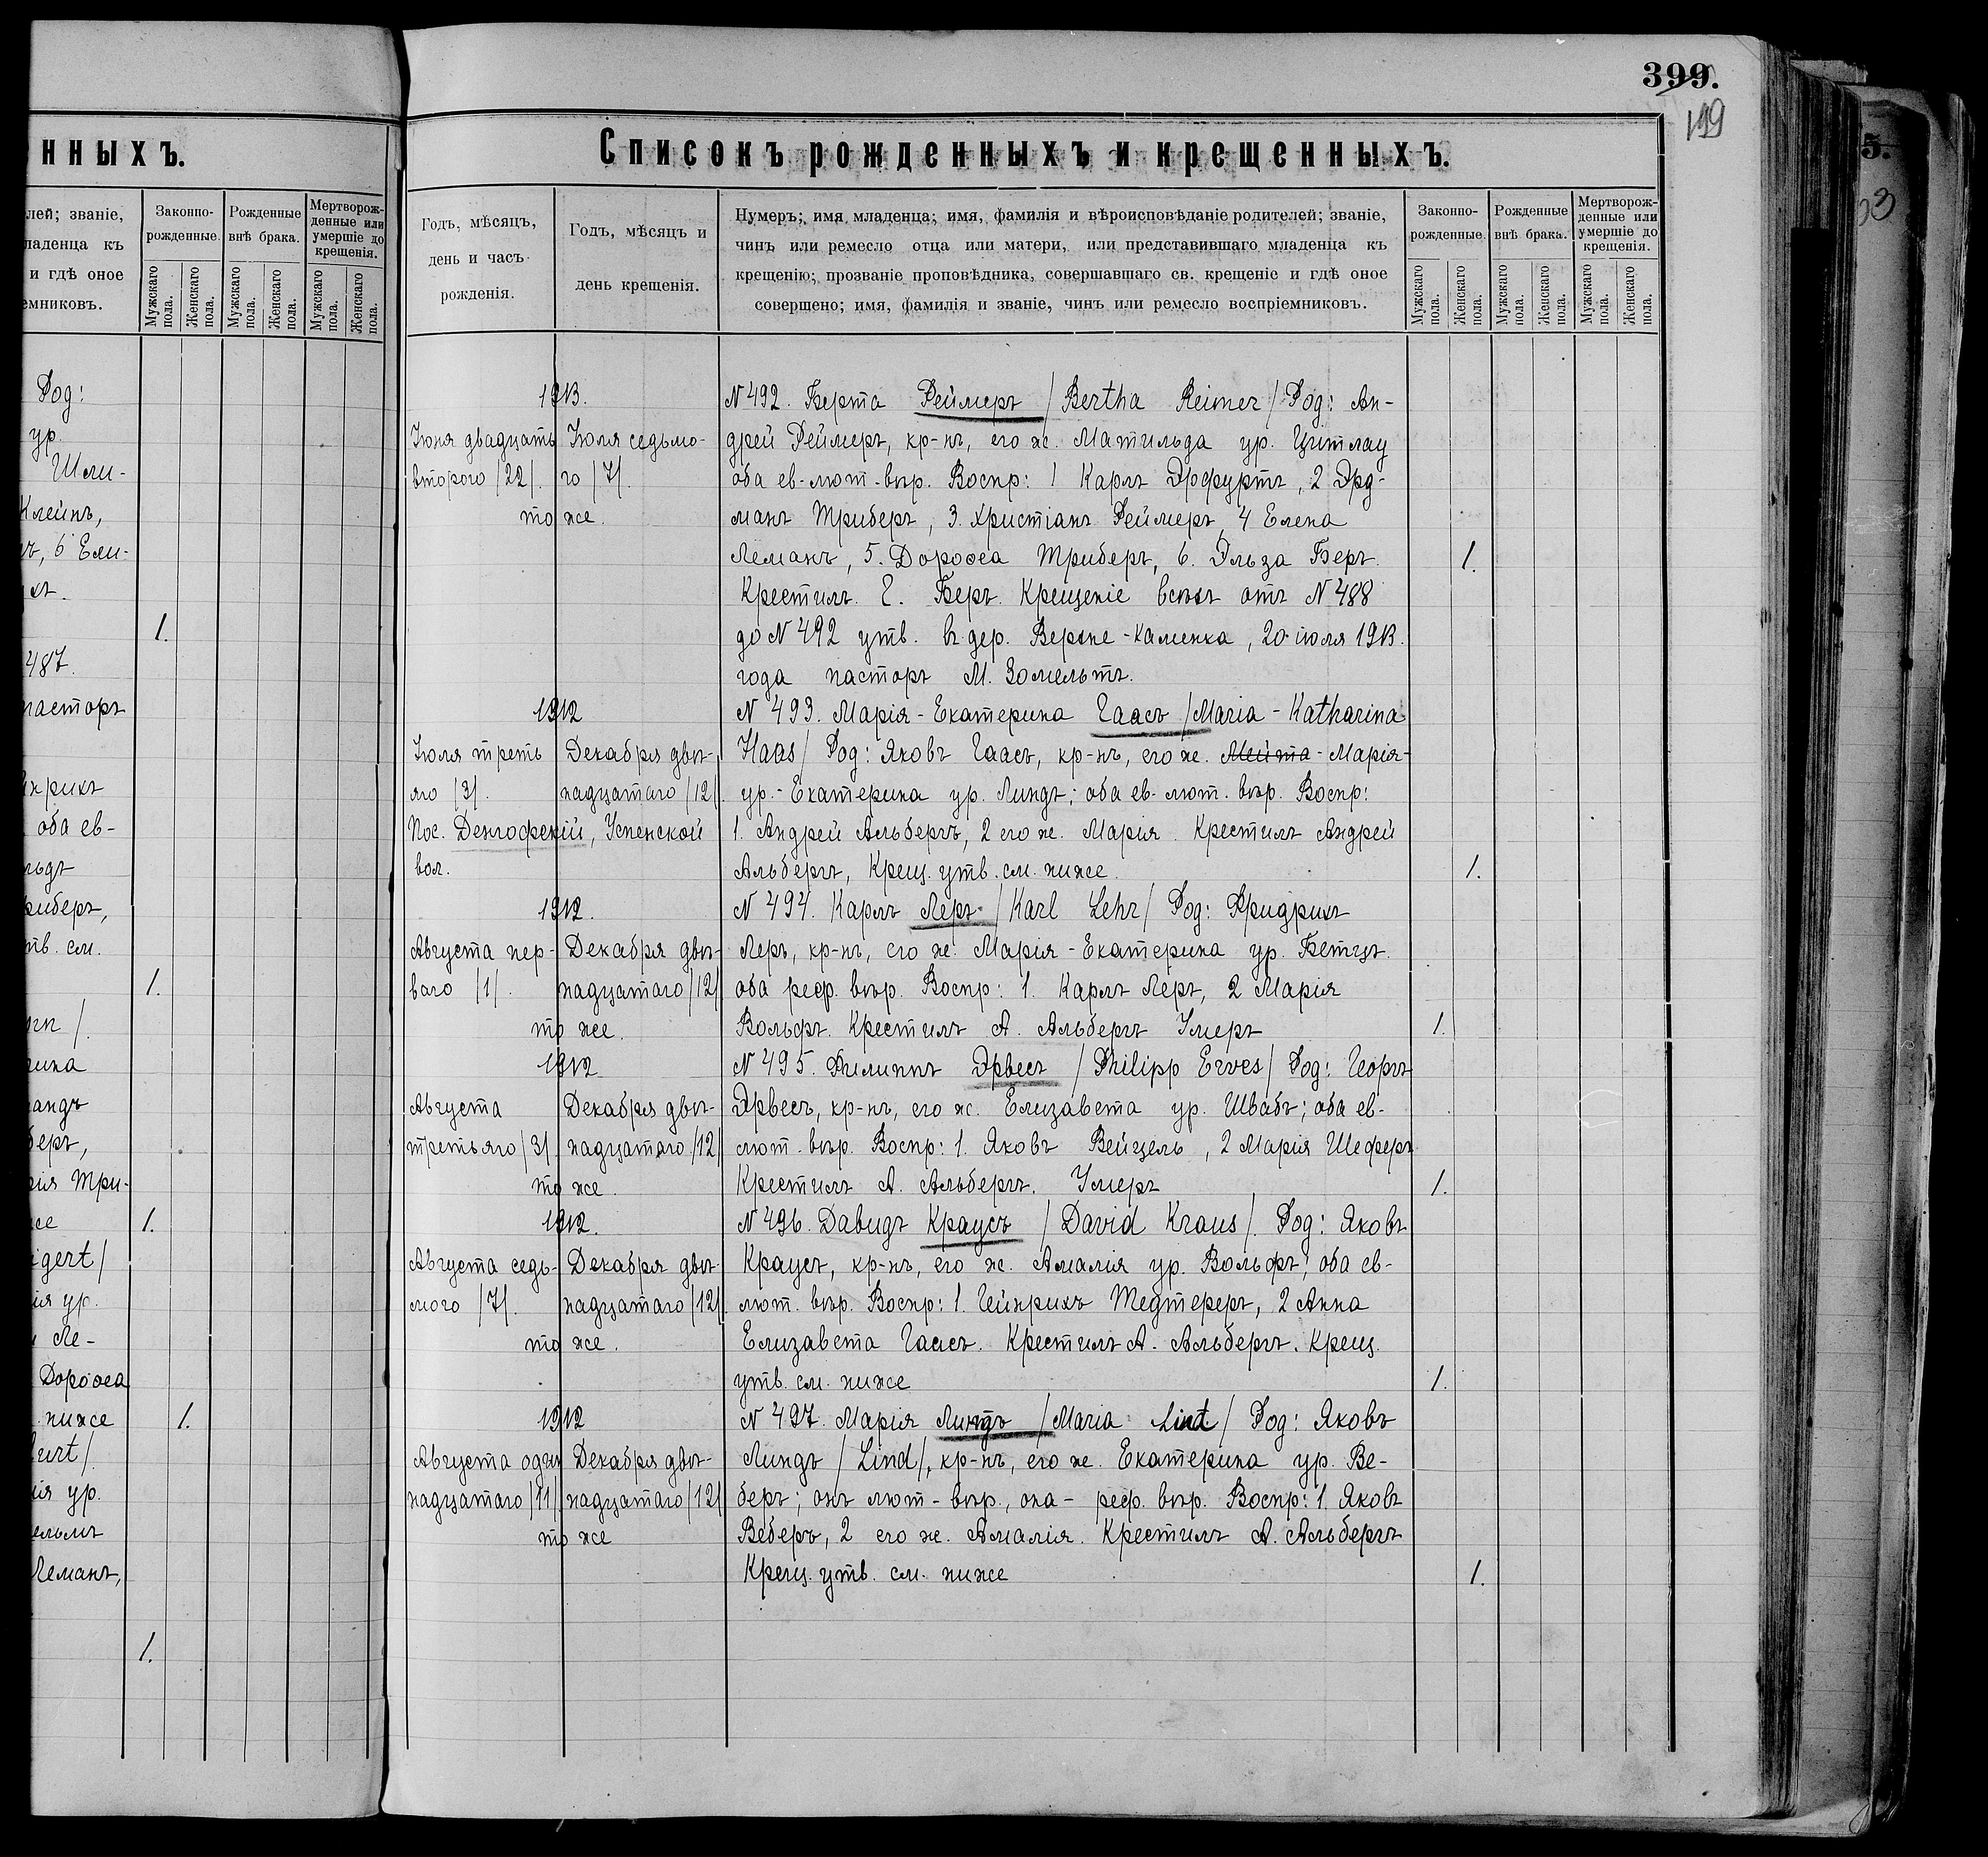 нныхъ.
лей; званіе,
ладенца къ
и гдѣ оное
емниковъ.
Законно-
рожденные.
Рожденные
внѣ брака.
Мертворож-
денные или
умершіе до
крещенія.
Мужскаго пола.
Женскаго пола.
Мужскаго пола.
Женскаго пола.
Мужскаго пола.
Женскаго пола.
Род:
ур.
Шли-
Клейнъ,
ъ, 6 Ели-
1.
487.
пасторъ
оба ев-
льдъ
риберъ,
тв. см.
1.
рина
андъ
беръ,
рія Три-
1.
igert/
ія ур.
Ле-
Дороѳеа
ниже
1.
urt/.
ія ур.
ельмъ
Леманъ,
1.
399.
199
Списокъ рожденныхъ и крещенныхъ.
Годъ, мѣсяцъ,
день и часъ
рожденія.
Годъ, мѣсяцъ и
день крещенія.
Нумеръ; имя младенца; имя, фамилія и вѣроисповѣданіе родителей; званіе,
чинъ или ремесло отца или матери, или представившаго младенца къ
крещенію; прозваніе проповѣдника, совершавшаго св. крещеніе и гдѣ оное
совершено; имя, фамилія и званіе, чинъ или ремесло воспріемниковъ.
Законно-
рожденные.
Рожденные
внѣ брака.
Мертворож-
денные или
умершіе до
крещенія.
Мужскаго пола.
Женскаго пола.
Мужскаго пола.
Женскаго пола.
Мужскаго пола.
Женскаго пола.
1913. N 492. Берта Реймеръ /Bertha Reimer/ Род: Ан-
Іюня двадцать Іюля седьмо- дрей Реймеръ, кр-нъ, его ж. Матильда ур. Цитлау
второго /22/. го /7/. оба ев-лют. вѣр. Воспр: 1 Карлъ Эрфуртъ, 2. Эрд-
то же. манъ Триберъ, 3. Христіанъ Реймеръ, 4 Елена
Леманъ, 5. Дороѳеа Триберъ, 6. Эльза Беръ. 1.
Крестилъ Г. Беръ. Крещеніе всѣхъ отъ N 488
до N 492 утв. въ дер. Верхне-Каменка, 20 іюля 1913.
года пасторъ М. Зомельтъ.
1912 N 493. Марія-Екатерина Гаасъ /Maria-Katharina
Іюля треть Декабря двѣ- Haas/ Род: Яковъ Гаасъ, кр-нъ, его ж. Мейта - Марія-
яго /3/. надцатаго /12/. ур.-Екатерина ур. Линдъ; оба ев. лют. вѣр. Воспр:
Пос. Денгофскій, Успенской 1. Андрей Альбергъ, 2 его ж. Марія. Крестилъ Андрей
вол. Альбергъ, Крещ. утв. см. ниже. 1.
1912. N 494. Карлъ Леръ /Karl Lehr/ Род: Фридрихъ
Августа пер- Декабря двѣ- Леръ, кр-нъ, его ж. Марія-Екатерина ур. Бетцъ.
ваго /1/. надцатаго /12/ оба реф. вѣр. Воспр: 1. Карлъ Леръ, 2 Марія
то же. Вольфъ. Крестилъ А. Альбергъ Умеръ 1.
1912 N 495. Филиппъ Эрвесъ /Philipp Erves/ Род: Георгъ
Августа Декабря двѣ- Эрвесъ, кр-нъ, его ж. Елизавета ур. Швабъ; оба ев-
третьяго /3/. надцатаго /12/ лют. вѣр. Воспр: 1. Яковъ Вейцель, 2 Марія Шеферъ
то же. Крестилъ А. Альбергъ. Умеръ 1.
1912. N 496. Давидъ Краусъ /David Kraus/. Род: Яковъ
Августа седь- Декабря двѣ- Краусъ, кр-нъ, его ж. Амалія ур. Вольфъ; оба ев-
мого /7/. надцатаго /12/. лют. вѣр. Воспр: 1. Гейнрихъ Тедтереръ, 2 Анна
то же. Елизавета Гаасъ. Крестилъ А. Альбергъ. Крещ.
утв. см. ниже 1.
1912 N 497. Марія Линдъ /Maria Lind/ Род: Яковъ
Августа один Декабря двѣ- Линдъ /Lind/, кр-нъ, его ж. Екатерина ур. Ве-
надцатаго /11/ надцатаго /12/ беръ; онъ лют-вѣр., она - реф. вѣр. Воспр: 1. Яковъ
то же Веберъ, 2 его ж. Амалія. Крестилъ А. Альбергъ
Крещ. утв. см. ниже 1.
5.